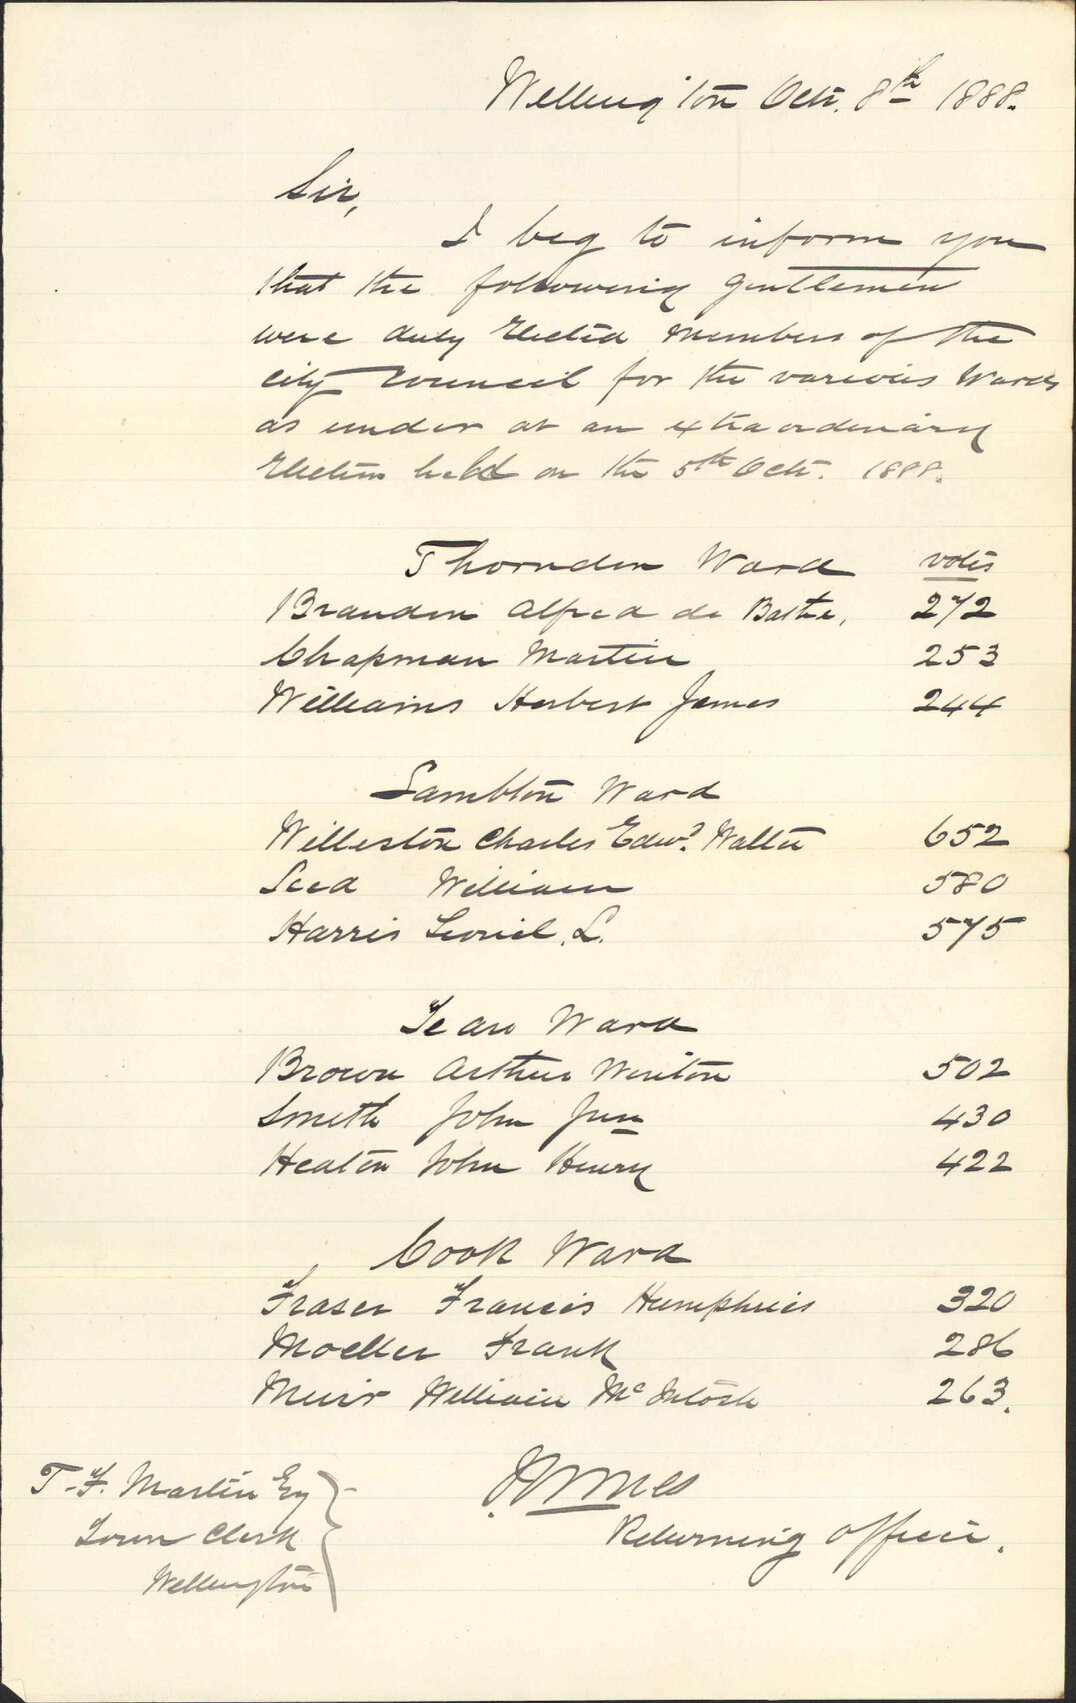 Wellington Octr. 8th 1888.
Sir,
I beg to inform you
that the following gentlemen
were duly Elected Members of the
City Council for the various Wards
as under at an extraordinary
Election held on the 5th Octr. 1888.
Thorndon Ward votes
Brandon Alfred de Bathe, 272
Chapman Martin 253
Williams Herbert James 244
Lambton Ward
Willeston Charles Edwd. Walter 652
Seed William 580
Harris Lionel. L. 575
Te Aro Ward
Brown Arthur Winton 502
Smith John Jun 430
Heaton John Henry 422
Cook Ward
Fraser Francis Humphries 320
Moeller Frank 286
Muir William McIntosh 263.
T. F. Martin Esq
Town Clerk
Wellington
Returning Officer.